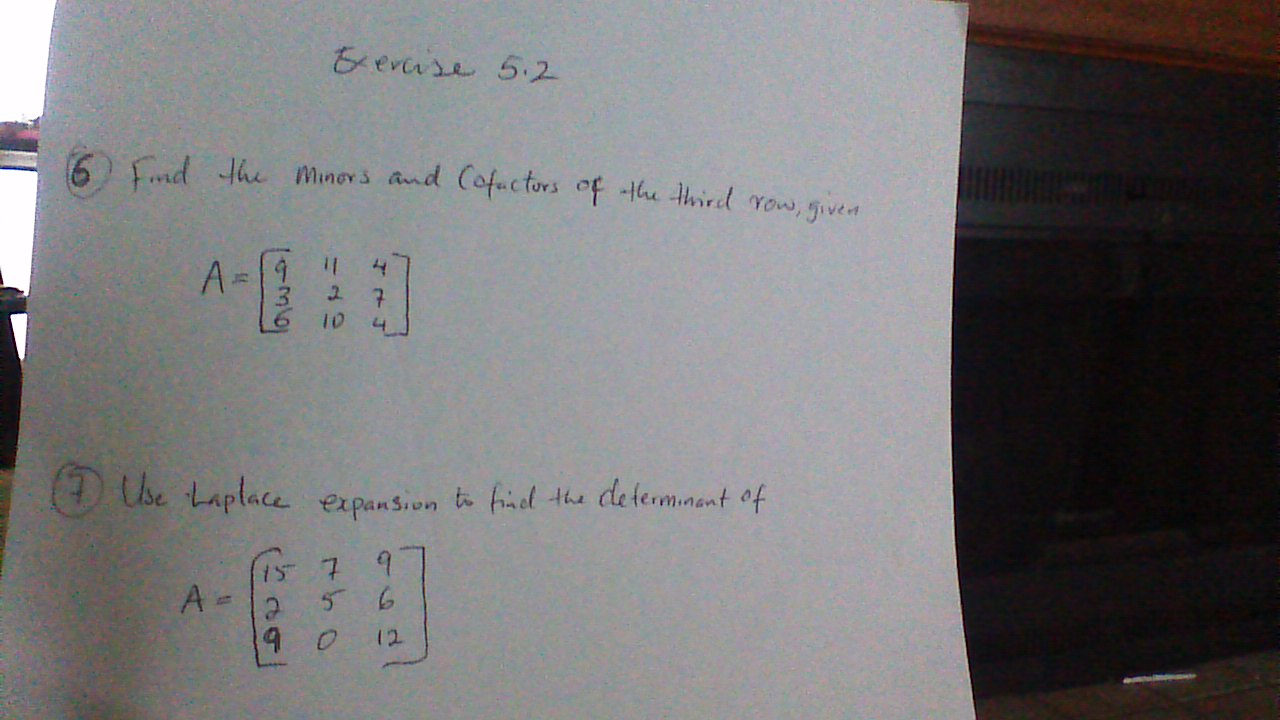 Exercise 5.2
6 Find the Minors and Cofactors of the third row, given
A = [9 11 4
3 2 7
6 10 4]
7 Use Laplace expansion to find the determinant of
A = [15 7 9
2 5 6
9 0 12]